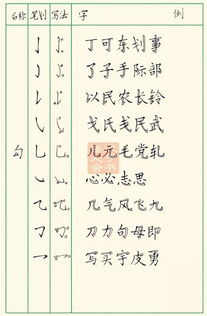 名称 笔划 写法 字 例
亅 丁可东划事
了子手际部
以民农长铃
戈氏戋民武
勾 乚 儿元毛党轧
心必志思
乁 几气风飞九
刀力句母即
乛 写买宇皮勇